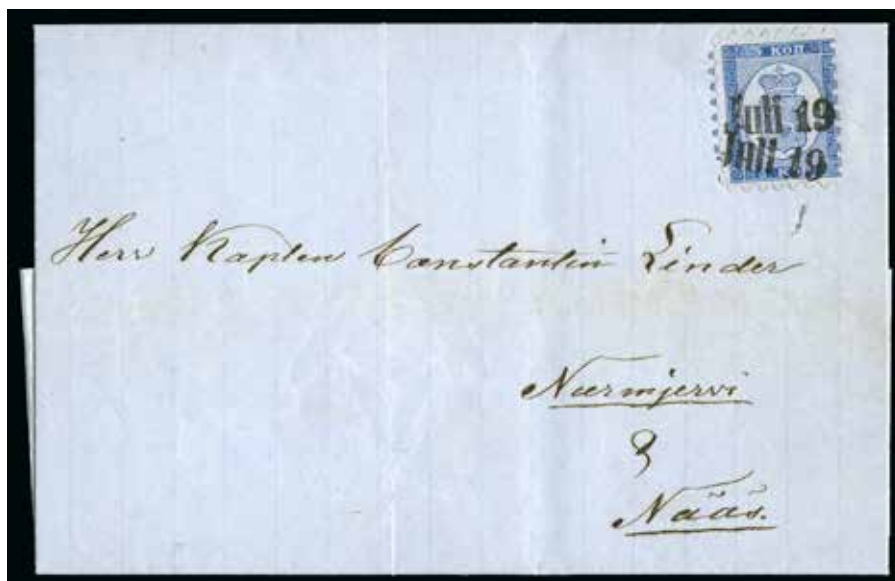 5 КОП
Juli 19
Juli 19
Herr Kapten Constantin Linder
Nurmjervi
&
Nääs.